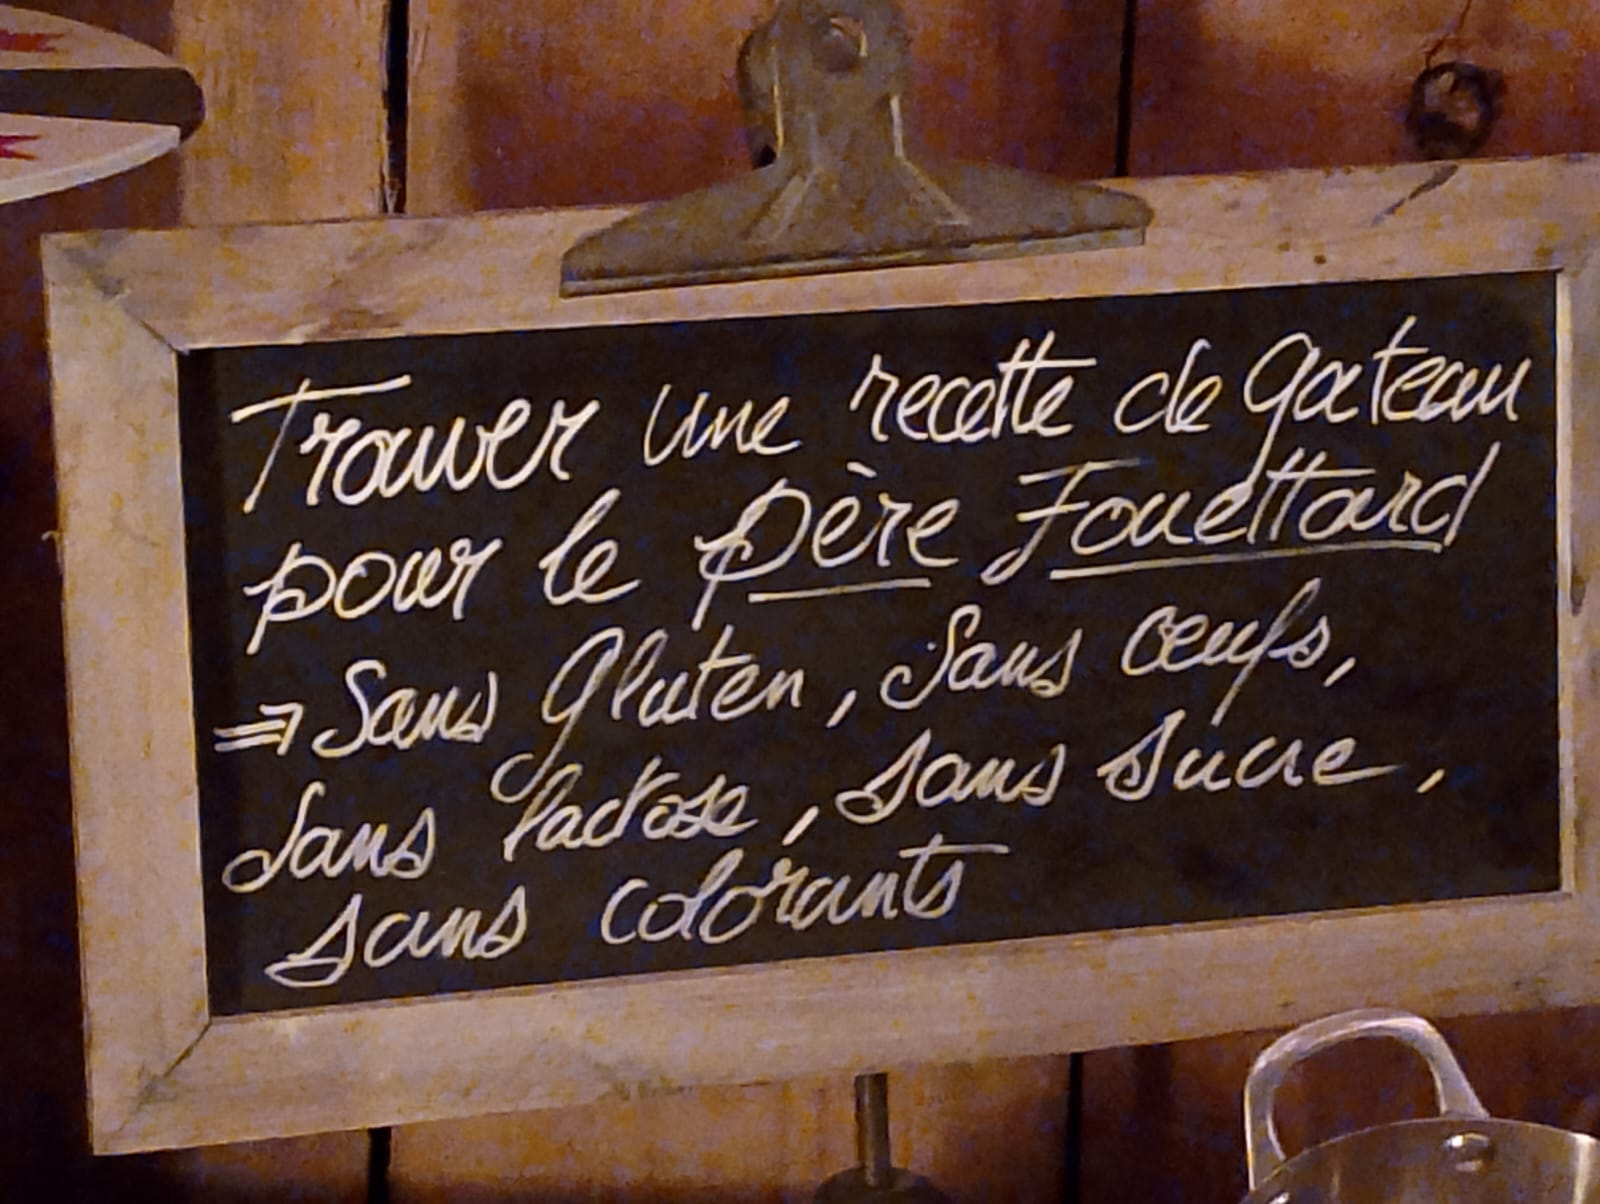 Trouver une recette de gateau
pour le père Fouettard
⇒ Sans gluten, Sans œufs,
Sans lactose, sans sucre,
sans colorants